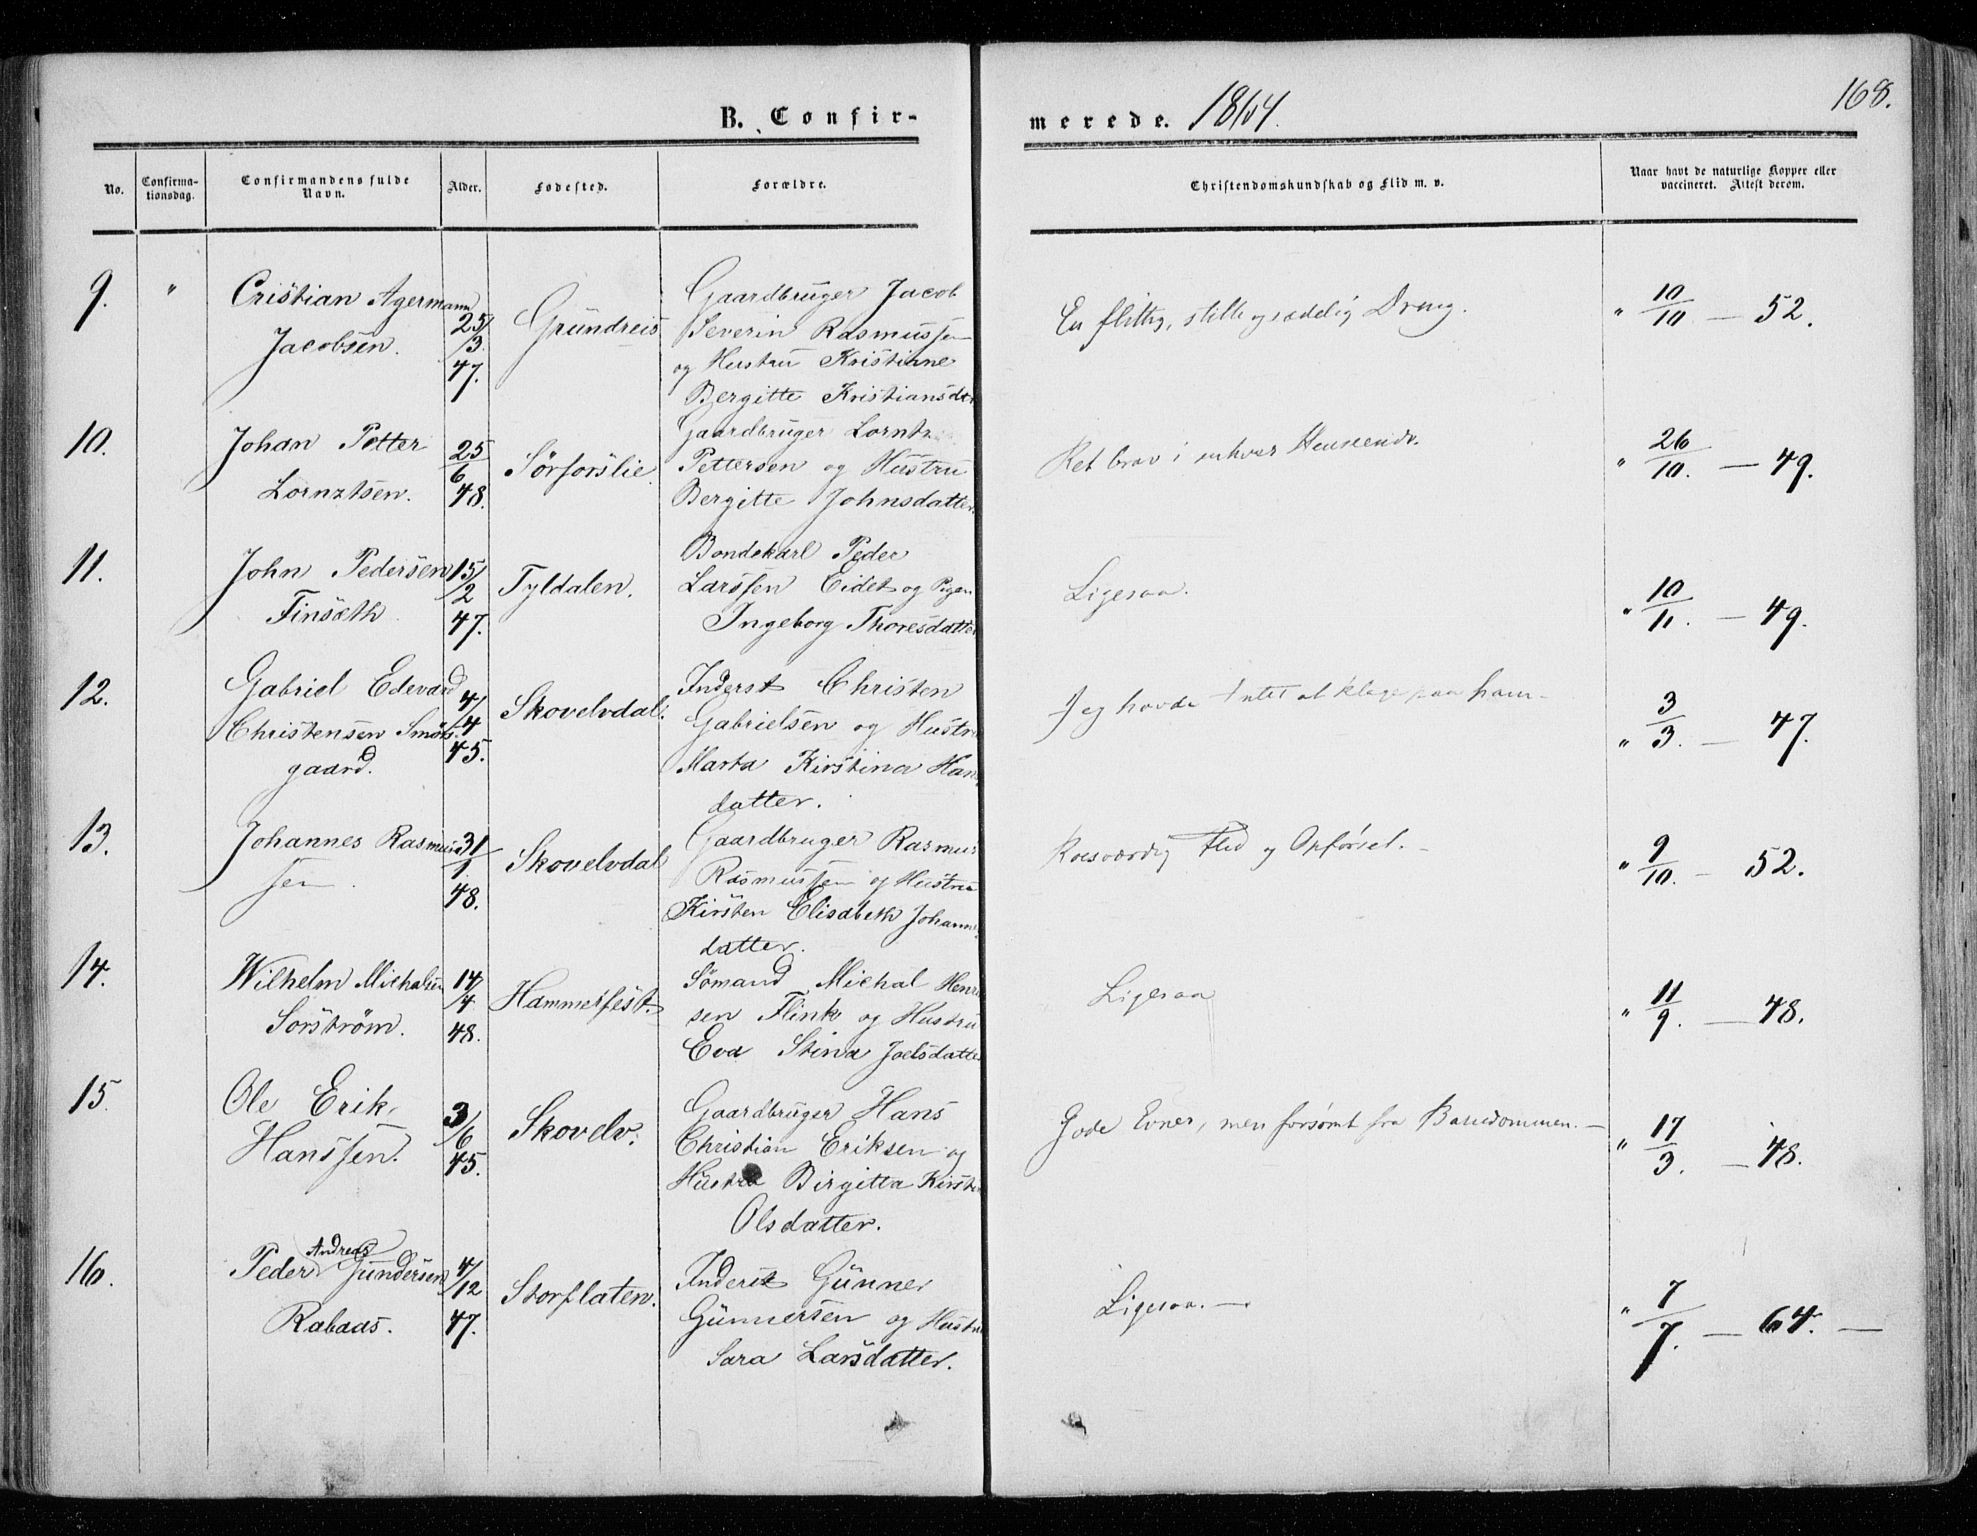 168.
B. Confir- merede. 1864.
No.
Confirma-
tionsdag.
Confirmandens fulde
Navn.
Alder.
Fødested.
Forældre.
Christendomskundskab og Flid m. v.
Naar havt de naturlige Kopper eller
vaccineret. Attest derom.
9. " Cristian Agermann
Jacobsen.
25/3 47.
Gründreis
Gaardbruger Jacob
Severin Rasmussen
og Hustru Kristiane
Bergitte Kristiansdat
En flittig, stille og sædelig Dreng.
" 10/10 — 52.
10. Johan Petter
Lornztsen.
25/6 48.
Sørforslie.
Gaardbruger Lorntz
Pettersen og Hustru
Bergitte Johnsdatter.
Ret brav i enhver Henseende.
" 26/10. — 49.
11. John Pedersen
Finsæth
15/2 47.
Tyldalen.
Bondekarl Peder
Larssen Eidet og Pigen
Ingeborg Thoresdatter
Ligesaa.
" 10/11. — 49.
12. Gabriel Edevard
Christensen Smørs-
gaard.
4/4 45.
Skovelvdal.
Inderst Christen
Gabrielsen og Hustru
Marta Kirstina Hans
datter.
Jeg havde Intet at klage paa ham.
" 3/3. — 47.
13. Johannes Rasmus
sen.
31/1. 48.
Skovelvdal
Gaardbruger Rasmus
Rasmussen og Hustru
Kirsten Elisabeth Johannes
datter.
Roesværdig Flid og Opførsel. —
" 9/10. — 52.
14. Wilhelm Michalsen
Sorström.
14/4 48.
Hammerfest.
Sömand Michal Henri
sen Flink og Hustru
Eva Stina Joelsdatter
Ligesaa
" 11/9. — 48.
15. Ole Erik
Hanssen.
3/6 45.
Skovelv.
Gaardbruger Hans
Christian Eriksen og
Hustru Birgitta Kirstin
Olsdatter.
Gode Evner, men forsømt fra Barndommen. —
" 17/3. — 48.
16. Peder Andreas Gundersen
Rabaas.
4/12 47.
Storslaten.
Inderst Günner
Günnersen og Hustru
Sara Larsdatter.
Ligesaa. —
" 7/7. — 64. —